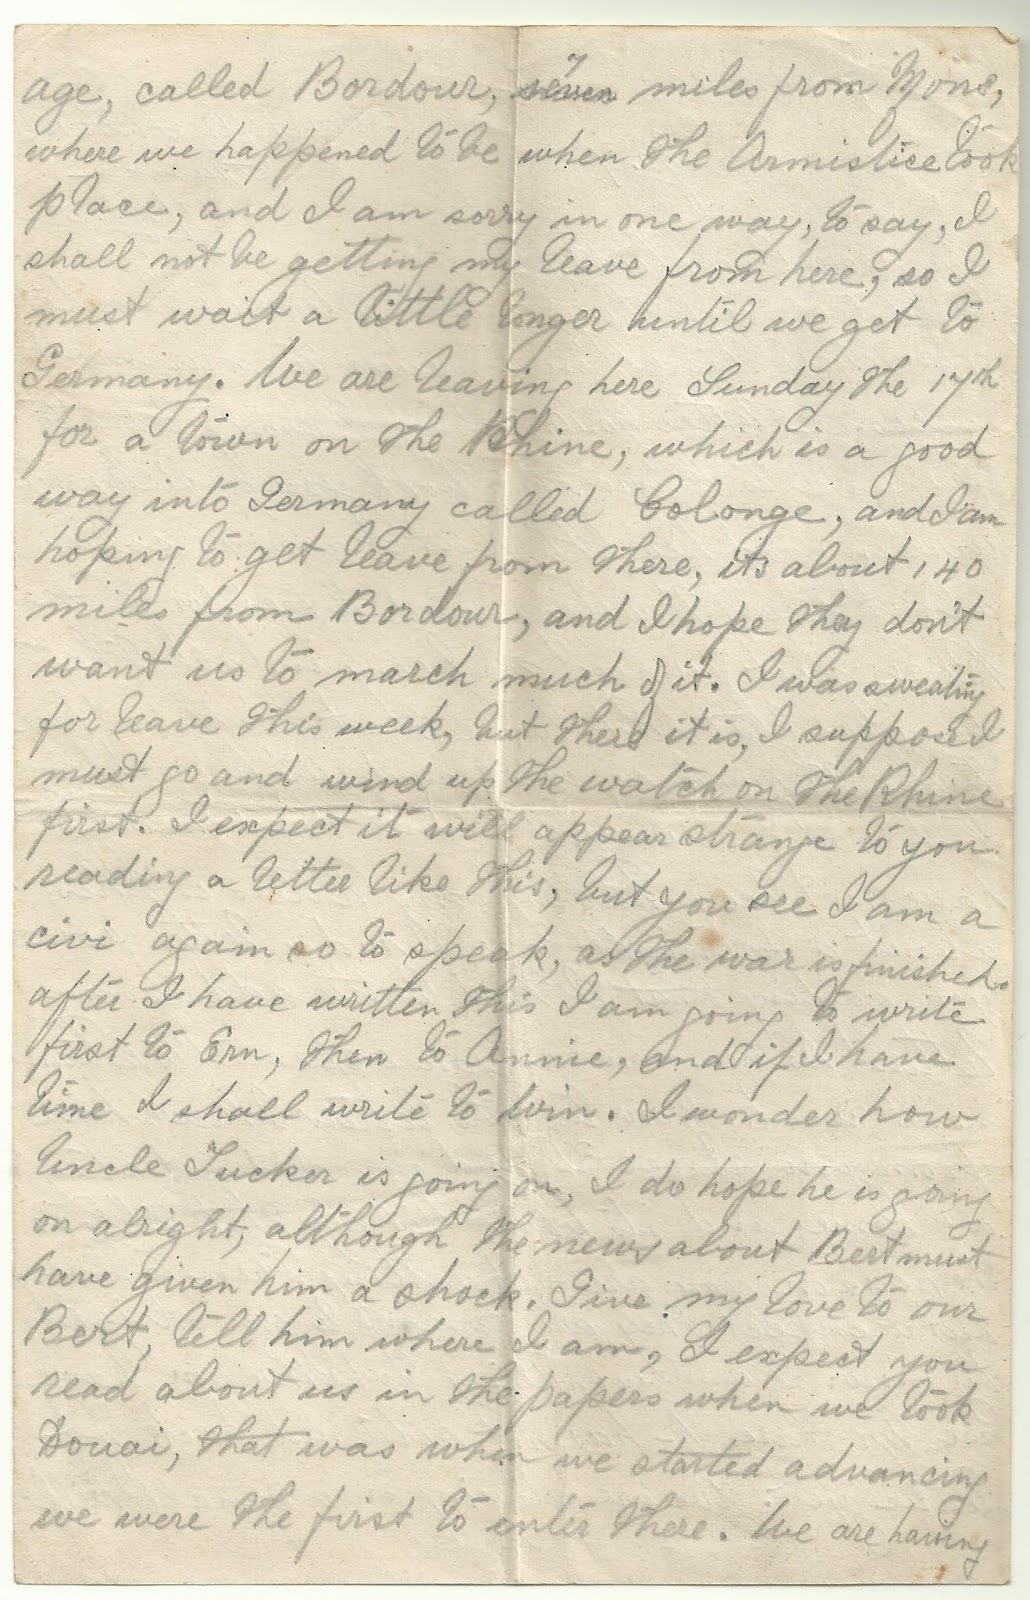 age, called Bordour, seven 7 miles from Mons,
where we happened to be when the Armistice took
place, and I am sorry in one way, to say, I
shall not be getting my leave from here, so I
must wait a little longer until we get to
Germany. We are leaving here Sunday the 17th
for a town on the Rhine, which is a good
way into Germany called Colonge, and I am
hoping to get leave from there, its about 140
miles from Bordour, and I hope they don't
want us to march much of it. I was sweating
for leave this week, but there it is, I suppose I
must go and wind up the watch on the Rhine
first. I expect it will appear strange to you
reading a letter like this, but you see I am a
civi again so to speak, as the war is finished.
after I have written this I am going to write
first to Ern, then to Annie, and if I have
time I shall write to Win. I wonder how
Uncle Tucker is going on, I do hope he is going
on alright, although the news about Bert must
have given him a shock. Give my love to our
Bert, tell him where I am, I expect you
read about us in the papers when we took
Douai, that was when we started advancing
we were the first to enter there. We are having